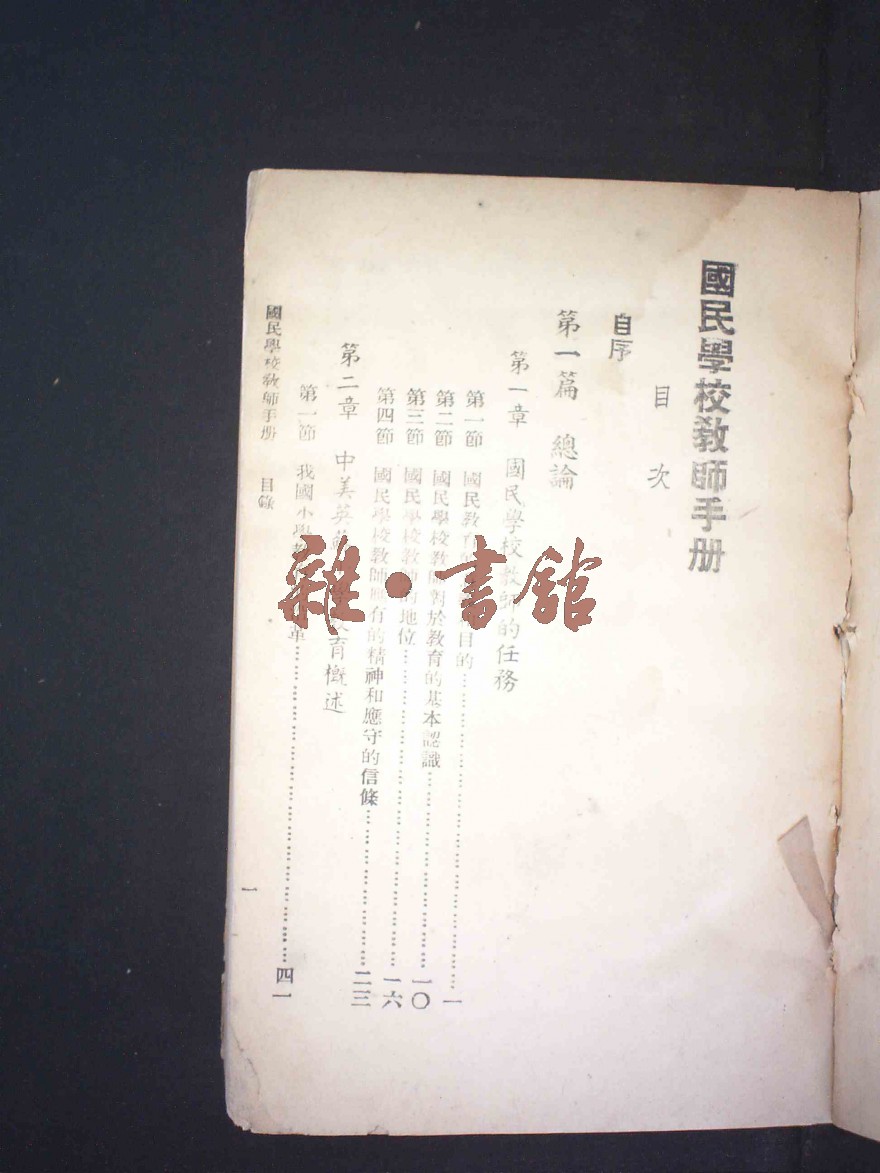 國民學校教師手册
目次
自序
第一篇 總論
第一章 國民學校教師的任務
第一節 國民教育目的……一
第二節 國民學校教師對於教育的基本認識……一〇
第三節 國民學校教師的地位……一六
第四節 國民學校教師應有的精神和應守的信條……二三
第二章 中美英教育概述
第一節 我國小學革……四一
國民學校教師手册 目錄
一
雜·書館